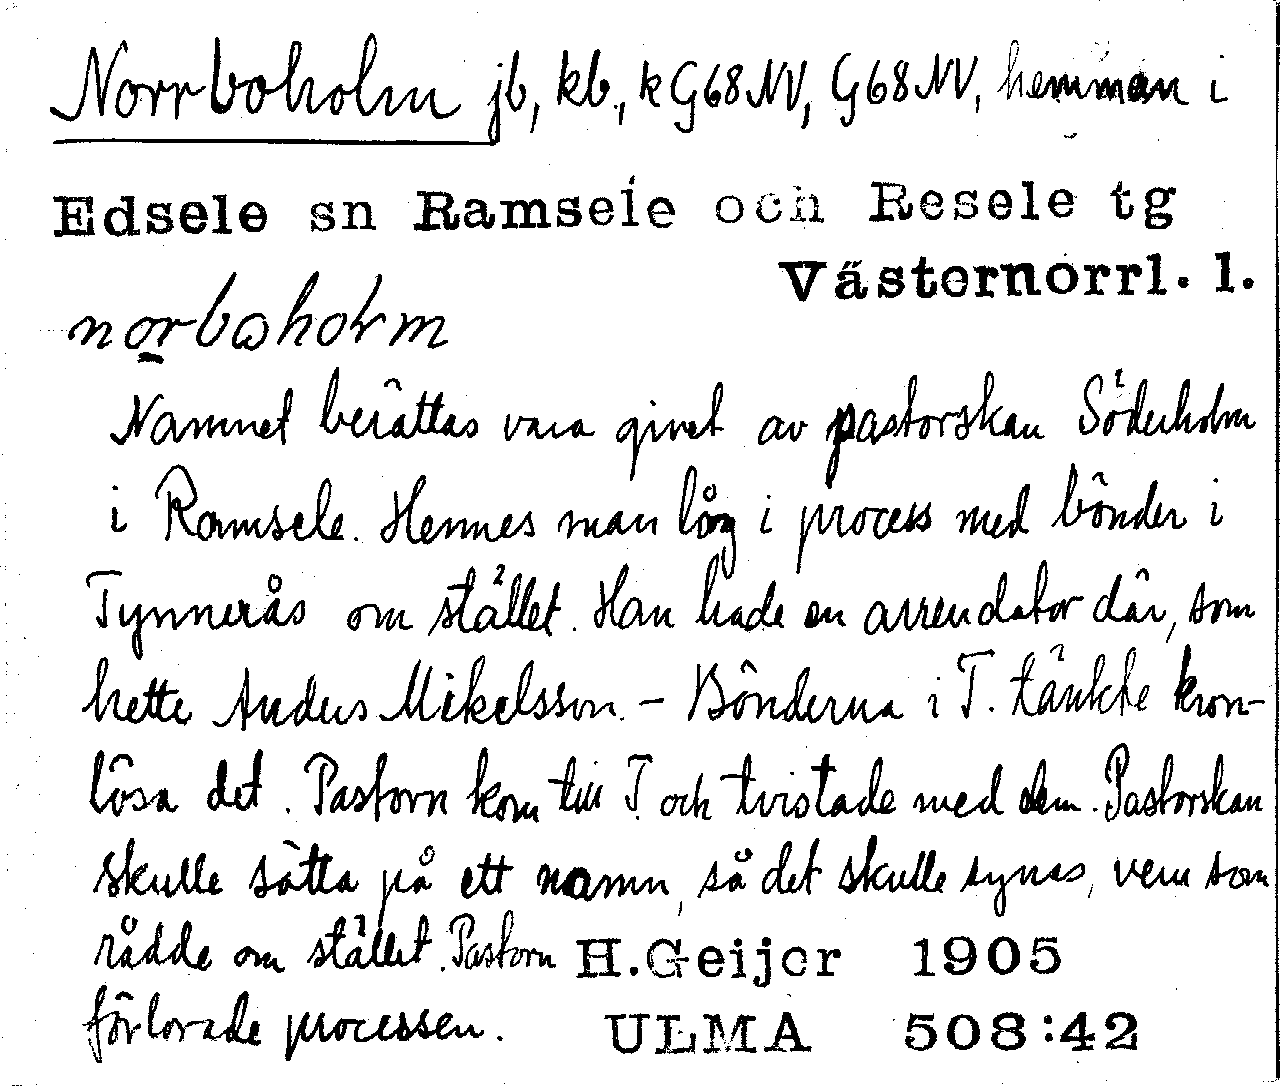 Norrboholm jb, kb., k G68NV, G68NV, hemman i
Edsele sn Ramsele och Resele tg
Västernorrl. l.
Namnet berättas vara givet av pastorskan Söderholm
i Ramsele. Hennes man låg i process med bönder i
Tynnerås om stället. Han hade en arrendator där, som
hette Anders Mikelsson. – Bönderna i T. tänkte kron-
lösa det. Pastorn kom till T och tvistade med dem. Pastorskan
skulle sätta på ett namn, så det skulle synas, vem som
rådde om stället. Pastorn
förlorade processen.
H.Geijer 1905
ULMA 508:42